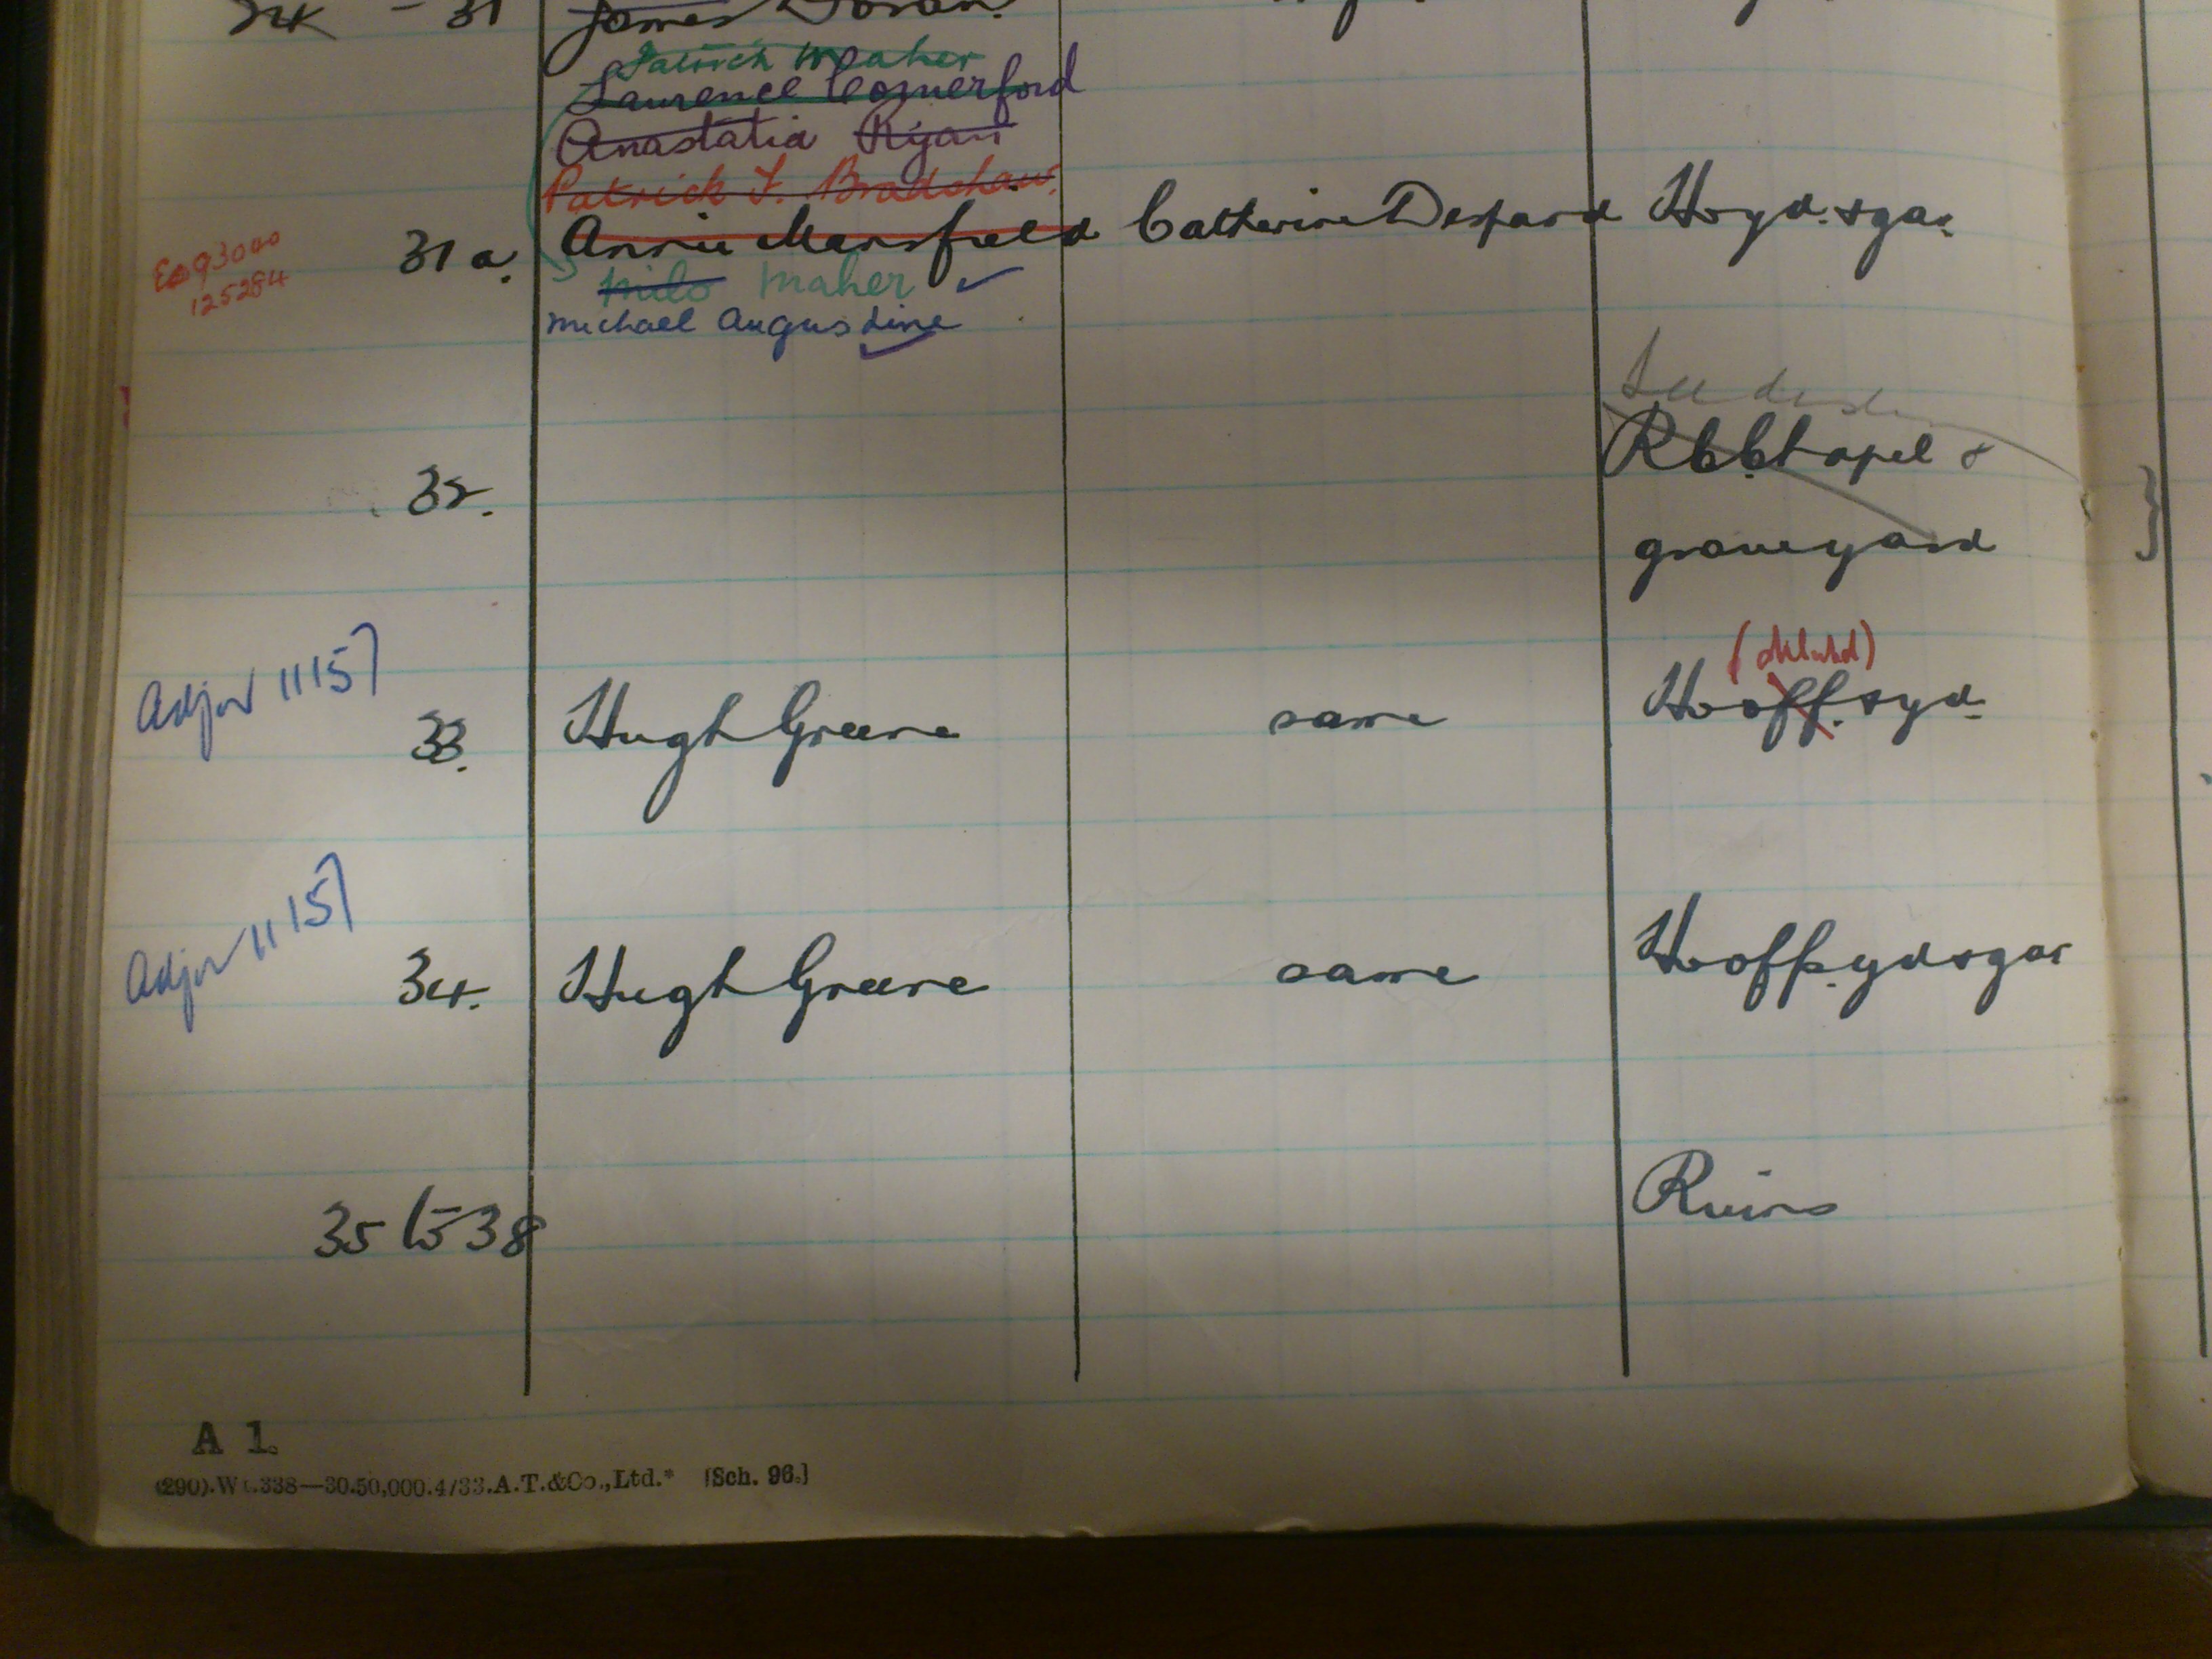 - 31 James Doran.
Patrick Maher
Laurence Comerford
Anastatia Ryan
Patrick J. Bradshaw.
31a. Annie Mansfield Catherine Despard Ho yd. & gar.
93000
125284
Milo Maher ✓
Michael Augustine
32. R.C. Chapel &
graveyard
Adjov 11157
33. Hugh Greene same Ho off. & yd.
Adjov 11157
34. Hugh Greene same Ho offs. yd & gar
35 to 38 Ruins
A 1.
(290).Wt.338—30.50,000.4/33.A.T.&Co.,Ltd.* [Sch. 96.]